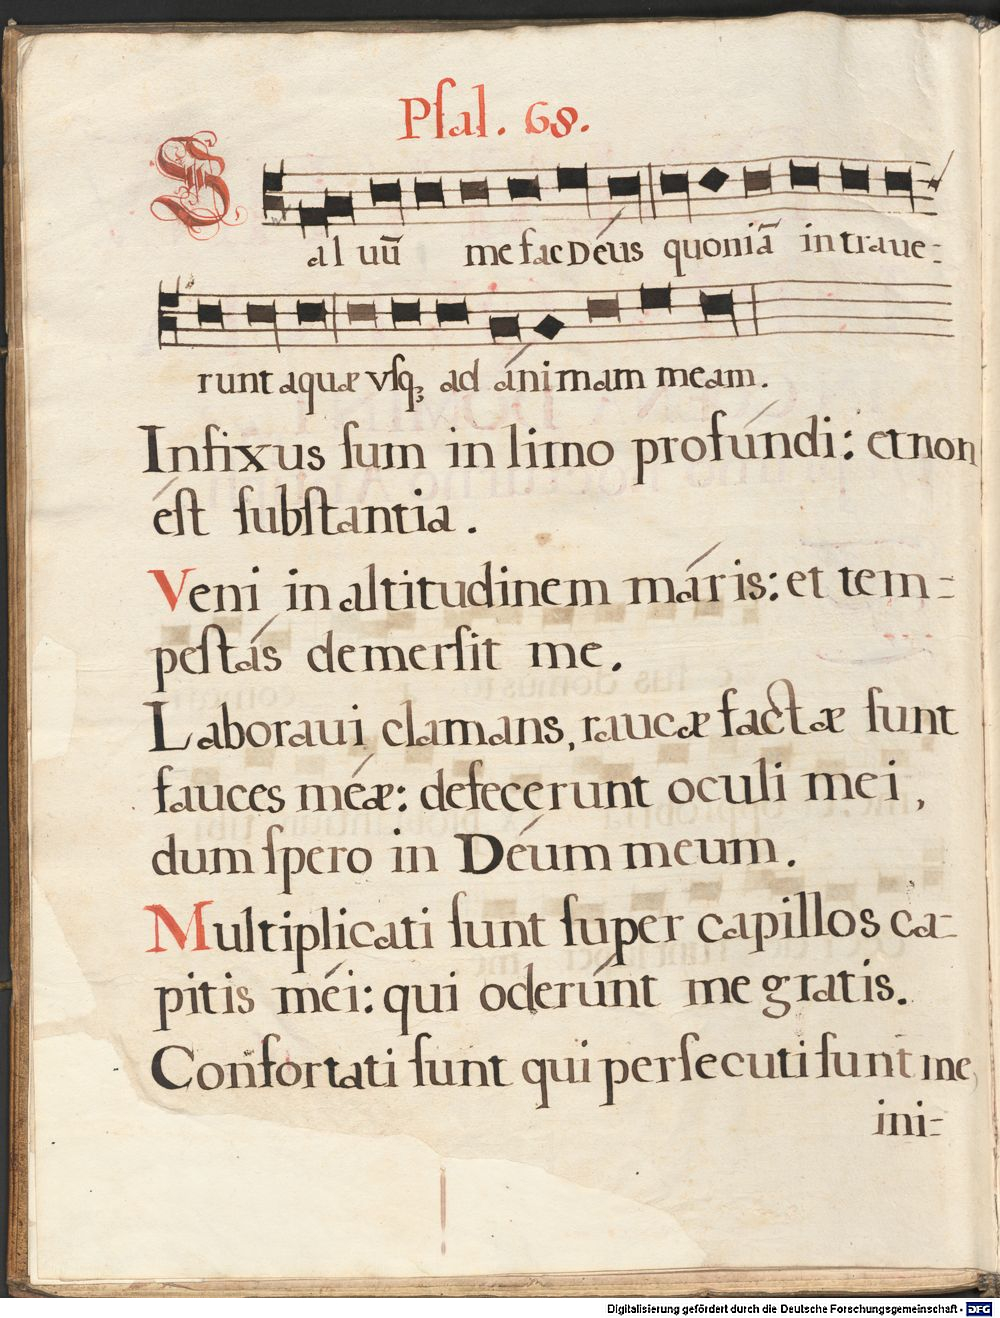 Pſal. 68.
Sal uũ me fac Déus quoniã intraue-
runt aquæ vſqꝫ ad ánimam meam.
Infixus ſum in limo profúndi: et non
éſt ſubſtantia.
Veni in altitudinem máris: et tem-
peſtás demerſit me.
Laboraui clamans, raucæ factæ ſunt
fauces méæ: defecerunt oculi mei,
dum ſpero in Déum meum.
Multiplicati ſunt ſuper capillos ca-
pitis méi: qui oderúnt me gratis.
Confortati ſunt qui perſecuti ſunt me,
ini-
Digitalisierung gefördert durch die Deutsche Forschungsgemeinschaft - DFG